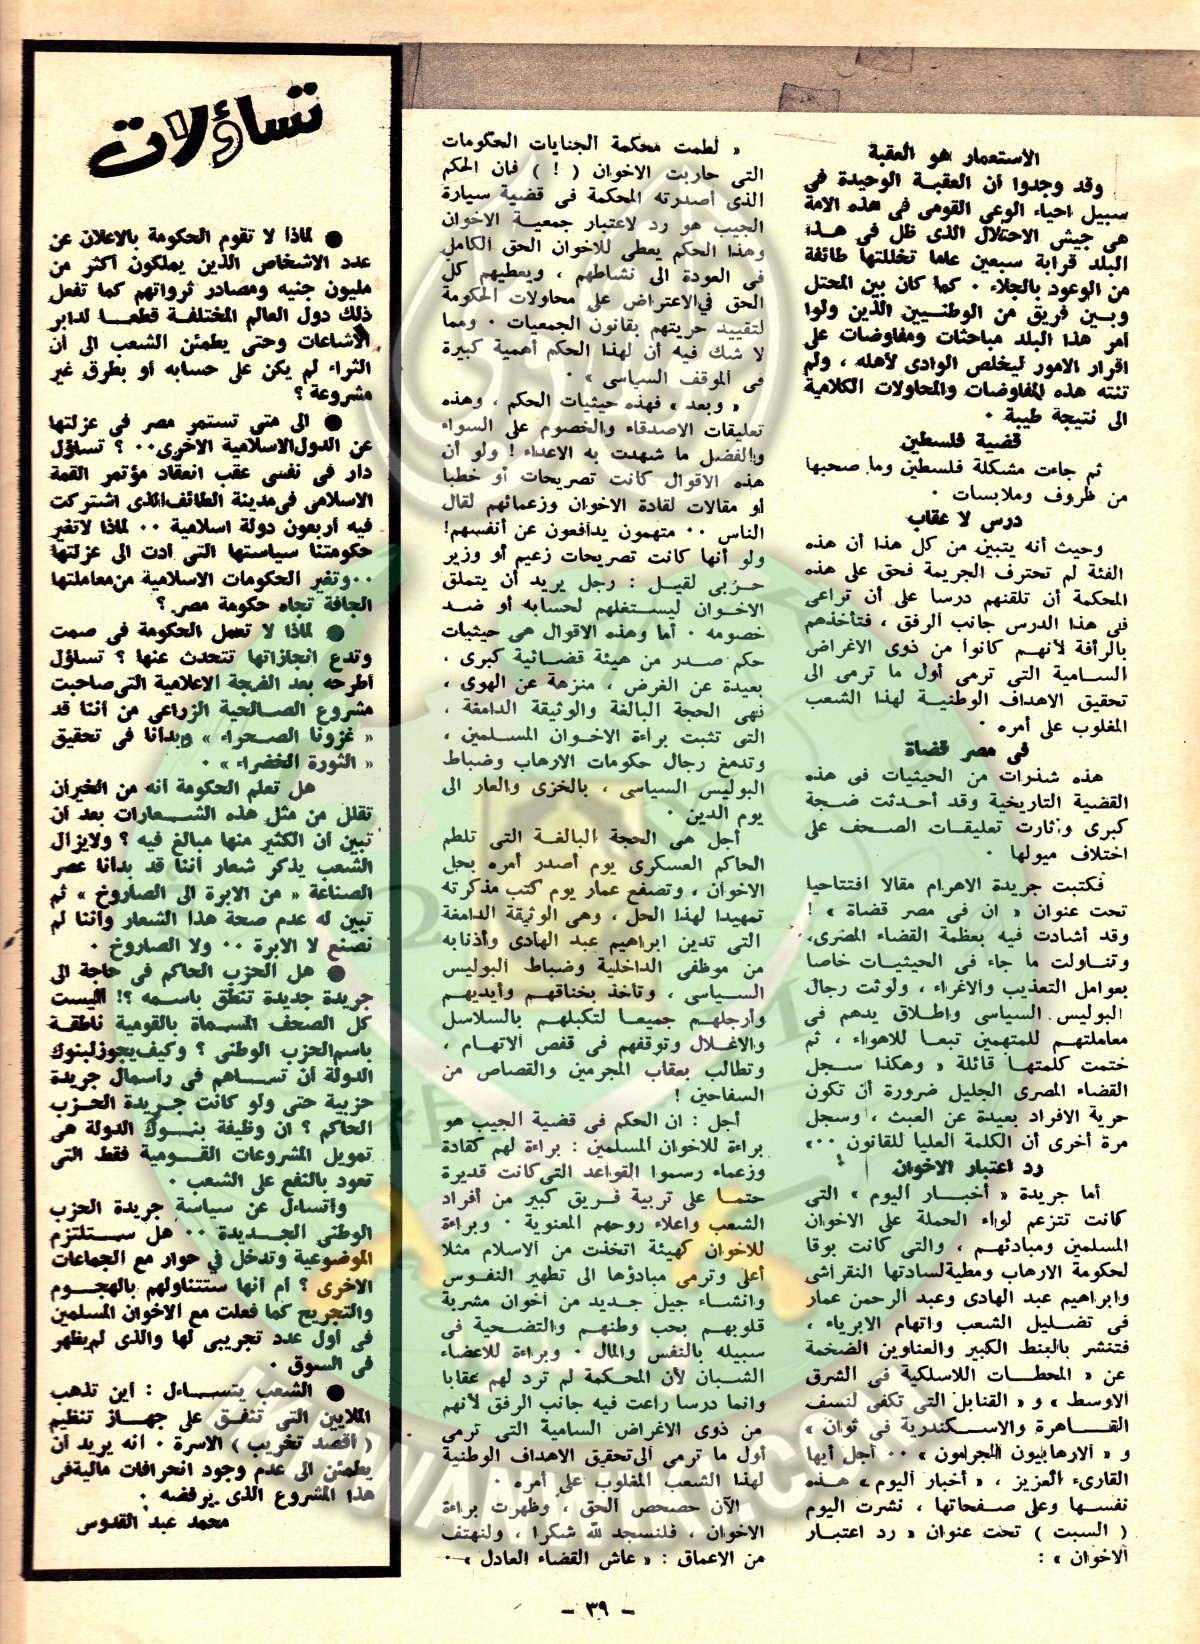 الاستعمار هو العقبة
وقد وجدوا أن العقبة الوحيدة في
سبيل احياء الوعي القومى فى هذه الامة
هى جيش الاحتلال الذى ظل فى هذا
البلد قرابة سبعين عاما تخللتها طائفة
من الوعود بالجلاء ٠ كما كان بين المحتل
وبين فريق من الوطنيين الذين ولوا
أمر هذا البلد مباحثات ومفاوضات على
اقرار الامور ليخلص الوادى لأهله ، ولم
تنته هذه المفاوضات والمحاولات الكلامية
الى نتيجة طيبة ٠
قضية فلسطين
ثم جاءت مشكلة فلسطين وما صحبها
من ظروف وملابسات ٠
درس لا عقاب
وحيث أنه يتبين من كل هذا أن هذه
الفئة لم تحترف الجريمة فحق على هذه
المحكمة أن تلقنهم درسا على أن تراعى
فى هذا الدرس جانب الرفق ، فتأخذهم
بالرأفة لأنهم كانوا من ذوى الاغراض
السامية التى ترمى أول ما ترمى الى
تحقيق الاهداف الوطنية لهذا الشعب
المغلوب على أمره ٠
فى مصر قضاة
هذه شذرات من الحيثيات فى هذه
القضية التاريخية وقد أحدثت ضجة
كبرى وأثارت تعليقات الصحف على
اختلاف ميولها ٠
فكتبت جريدة الاهرام مقالا افتتاحيا
تحت عنوان « ان فى مصر قضاة » !
وقد أشادت فيه بعظمة القضاء المصرى،
وتناولت ما جاء فى الحيثيات خاصا
بعوامل التعذيب والاغراء ، ولوثت رجال
البوليس السياسى واطلاق يدهم فى
معاملتهم للمتهمين تبعا للاهواء ، ثم
ختمت كلمتها قائلة « وهكذا سجل
القضاء المصرى الجليل ضرورة أن تكون
حرية الافراد بعيدة عن العبث ، وسجل
مرة أخرى أن الكلمة العليا للقانون ٠٠»
رد اعتبار الاخوان
أما جريدة « أخبار اليوم » التى
كانت تتزعم لواء الحملة على الاخوان
المسلمين ومبادئهم ، والتى كانت بوقا
لحكومة الارهاب ومطية لسادتها النقراشى
وابراهيم عبد الهادى وعبد الرحمن عمار
فى تضليل الشعب واتهام الابرياء ،
فتنشر بالبنط الكبير والعناوين الضخمة
عن « المحطات اللاسلكية فى الشرق
الاوسط » و « القنابل التى تكفى لنسف
القاهرة والاسكندرية فى ثوان »
و « الارهابيون المجرمون » ٠٠ أجل أيها
القارىء العزيز ، « أخبار اليوم » هذه
نفسها وعلى صفحاتها ، نشرت اليوم
( السبت ) تحت عنوان « رد اعتبار
الاخوان » :
« لطمت محكمة الجنايات الحكومات
التى حاربت الاخوان ( ! ) فان الحكم
الذى أصدرته المحكمة فى قضية سيارة
الجيب هو رد لاعتبار جمعية الاخوان
وهذا الحكم يعطى للاخوان الحق الكامل
فى العودة الى نشاطهم ، ويعطيهم كل
الحق فى الاعتراض على محاولات الحكومة
لتقييد حريتهم بقانون الجمعيات ٠ ومما
لا شك فيه أن لهذا الحكم أهمية كبيرة
فى الموقف السياسى » ٠
« وبعد » فهذه حيثيات الحكم ، وهذه
تعليقات الاصدقاء والخصوم على السواء
والفضل ما شهدت به الاعداء ! ولو أن
هذه الاقوال كانت تصريحات أو خطبا
أو مقالات لقادة الاخوان وزعمائهم لقال
الناس ٠٠ متهمون يدافعون عن أنفسهم!
ولو أنها كانت تصريحات زعيم أو وزير
حزبى لقيل : رجل يريد أن يتملق
الاخوان ليستغلهم لحسابه أو ضد
خصومه ٠ أما وهذه الاقوال هى حيثيات
حكم صدر من هيئة قضائية كبرى ،
بعيدة عن الغرض ، منزهة عن الهوى ،
نهى الحجة البالغة والوثيقة الدامغة ،
التى تثبت براءة الاخوان المسلمين ،
وتدمغ رجال حكومات الارهاب وضباط
البوليس السياسى ، بالخزى والعار الى
يوم الدين ٠
أجل هى الحجة البالغة التى تلطم
الحاكم العسكرى يوم أصدر أمره بحل
الاخوان ، وتصفع عمار يوم كتب مذكرته
تمهيدا لهذا الحل ، وهى الوثيقة الدامغة
التى تدين ابراهيم عبد الهادى وأذنابه
من موظفى الداخلية وضباط البوليس
السياسى ، وتأخذ بخناقهم وأيديهم
وأرجلهم جميعا لتكبلهم بالسلاسل
والاغلال وتوقفهم فى قفص الاتهام ،
وتطالب بعقاب المجرمين والقصاص من
السفاحين !
أجل : ان الحكم فى قضية الجيب هو
براءة للاخوان المسلمين : براءة لهم كقادة
وزعماء رسموا القواعد التى كانت قديرة
حتما على تربية فريق كبير من أفراد
الشعب واعلاء روحهم المعنوية ٠ وبراءة
للاخوان كهيئة اتخذت من الاسلام مثلا
أعلى وترمى مبادؤها الى تطهير النفوس
وانشاء جيل جديد من اخوان مشربة
قلوبهم بحب وطنهم والتضحية فى
سبيله بالنفس والمال ٠ وبراءة للاعضاء
الشبان لأن المحكمة لم ترد لهم عقابا
وانما درسا راعت فيه جانب الرفق لأنهم
من ذوى الاغراض السامية التى ترمى
أول ما ترمى الى تحقيق الاهداف الوطنية
لهذا الشعب المغلوب على أمره ٠
الآن حصحص الحق ، وظهرت براءة
الاخوان ، فلنسجد لله شكرا ، ولنهتف
من الاعماق : « عاش القضاء العادل » ٠
تساؤلات
● لماذا لا تقوم الحكومة بالاعلان عن
عدد الاشخاص الذين يملكون أكثر من
مليون جنيه ومصادر ثرواتهم كما تفعل
ذلك دول العالم المختلفة قطعا لدابر
الاشاعات وحتى يطمئن الشعب الى أن
الثراء لم يكن على حسابه أو بطرق غير
مشروعة ؟
● الى متى تستمر مصر فى عزلتها
عن الدول الاسلامية الاخرى ٠٠ ؟ تساؤل
دار فى نفسى عقب انعقاد مؤتمر القمة
الاسلامى فى مدينة الطائف الذى اشتركت
فيه أربعون دولة اسلامية ٠٠ لماذا لا تغير
حكومتنا سياستها التى أدت الى عزلتها
٠٠ وتغير الحكومات الاسلامية من معاملتها
الجافة تجاه حكومة مصر ؟
● لماذا لا تعمل الحكومة فى صمت
وتدع انجازاتها تتحدث عنها ؟ تساؤل
أطرحه بعد الضجة الاعلامية التى صاحبت
مشروع الصالحية الزراعى من أننا قد
« غزونا الصحراء » وبدأنا فى تحقيق
« الثورة الخضراء » ٠
هل تعلم الحكومة أنه من الخير أن
تقلل من مثل هذه الشعارات بعد أن
تبين أن الكثير منها مبالغ فيه ؟ ولايزال
الشعب يذكر شعار أننا قد بدأنا عصر
الصناعة « من الابرة الى الصاروخ » ثم
تبين له عدم صحة هذا الشعار وأننا لم
نصنع لا الابرة ٠٠ ولا الصاروخ ٠
● هل الحزب الحاكم فى حاجة الى
جريدة جديدة تنطق باسمه ؟! أليست
كل الصحف المسماة بالقومية ناطقة
باسم الحزب الوطنى ؟ وكيف يجوز لبنوك
الدولة أن تساهم فى رأسمال جريدة
حزبية حتى ولو كانت جريدة الحزب
الحاكم ؟ ان وظيفة بنوك الدولة هى
تمويل المشروعات القومية فقط التى
تعود بالنفع على الشعب ٠
وأتساءل عن سياسة جريدة الحزب
الوطنى الجديدة ٠٠ هل ستلتزم
الموضوعية وتدخل في حوار مع الجماعات
الاخرى ؟ أم أنها ستتناولهم بالهجوم
والتجريح كما فعلت مع الاخوان المسلمين
فى أول عدد تجريبى لها والذى لم يظهر
فى السوق ٠
● الشعب يتساءل : أين تذهب
الملايين التى تنفق على جهاز تنظيم
( أقصد تخريب ) الاسرة ٠ انه يريد أن
يطمئن الى عدم وجود انحرافات مالية فى
هذا المشروع الذى يرفضه ٠
محمد عبد القدوس
- ٣٩ -